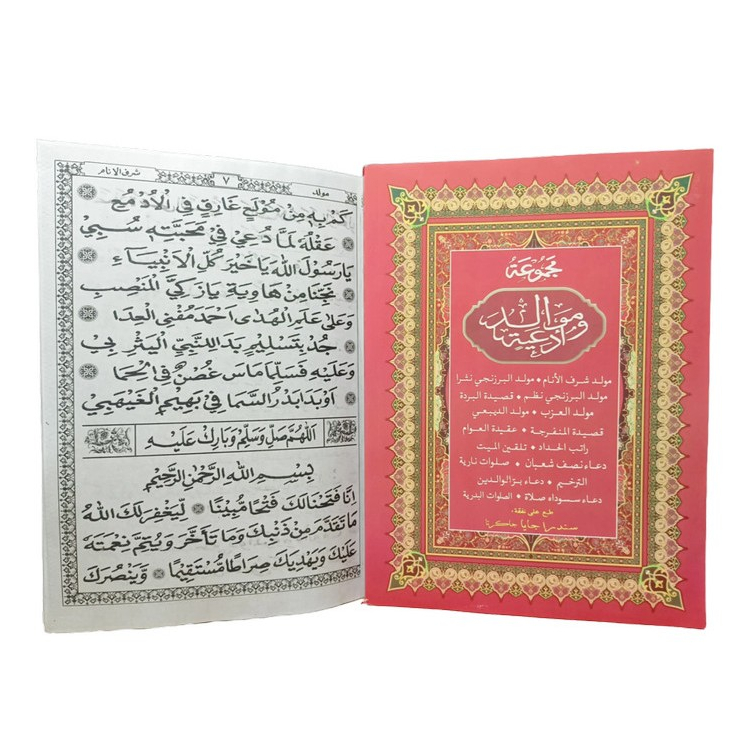 مولد
٧
شرف الانام
كَمْ بِهِ مِنْ مُوْلَعٍ غَارِقٍ فِي الْاَدْمُعِ
عَقْلُهُ لَمَّا دُعِيْ فِيْ مَحَبَّتِهِ سُبِيْ
يَا رَسُوْلَ اللهِ يَا خَيْرَ كُلِّ الْاَنْبِيَاءِ
نَجِّنَا مِنْ هَاوِيَةٍ يَا زَكِيَّ الْمَنْصِبِ
وَعَلٰى عَلَمِ الْهُدٰى اَحْمَدَ مُفْنِي الْعِدَا
جُدْ بِتَسْلِيْمٍ بَدَا لِلنَّبِيِّ الْيَثْرِبِيْ
وَعَلَيْهِ فَسَلِّمَا مَاسَ غُصْنٌ فِي الْحِمَا
اَوْ بَدَا بَدْرُ السَّمَا فِيْ بَهِيْمِ الْغَيْهَبِيْ
اَللّٰهُمَّ صَلِّ وَسَلِّمْ وَبَارِكْ عَلَيْهِ
بِسْمِ اللهِ الرَّحْمٰنِ الرَّحِيْمِ
اِنَّا فَتَحْنَا لَكَ فَتْحًا مُبِيْنًا لِيَغْفِرَ لَكَ اللهُ
مَا تَقَدَّمَ مِنْ ذَنْبِكَ وَمَا تَأَخَّرَ وَيُتِمَّ نِعْمَتَهُ
عَلَيْكَ وَيَهْدِيَكَ صِرَاطًا مُسْتَقِيْمًا وَيَنْصُرَكَ
مجموعة
موالد
وأدعية
مولد شرف الأنام • مولد البرزنجي نثرا
مولد البرزنجي نظم • قصيدة البردة
مولد العزب • مولد الديبعي
قصيدة المنفرجة • عقيدة العوام
راتب الحداد • تلقين الميت
دعاء نصف شعبان • صلوات نارية
الترخيم • دعاء برالوالدين
دعاء سسوداه صلاة • الصلوات البدرية
طبع على نفقة:
سندرا جايا جاكرتا